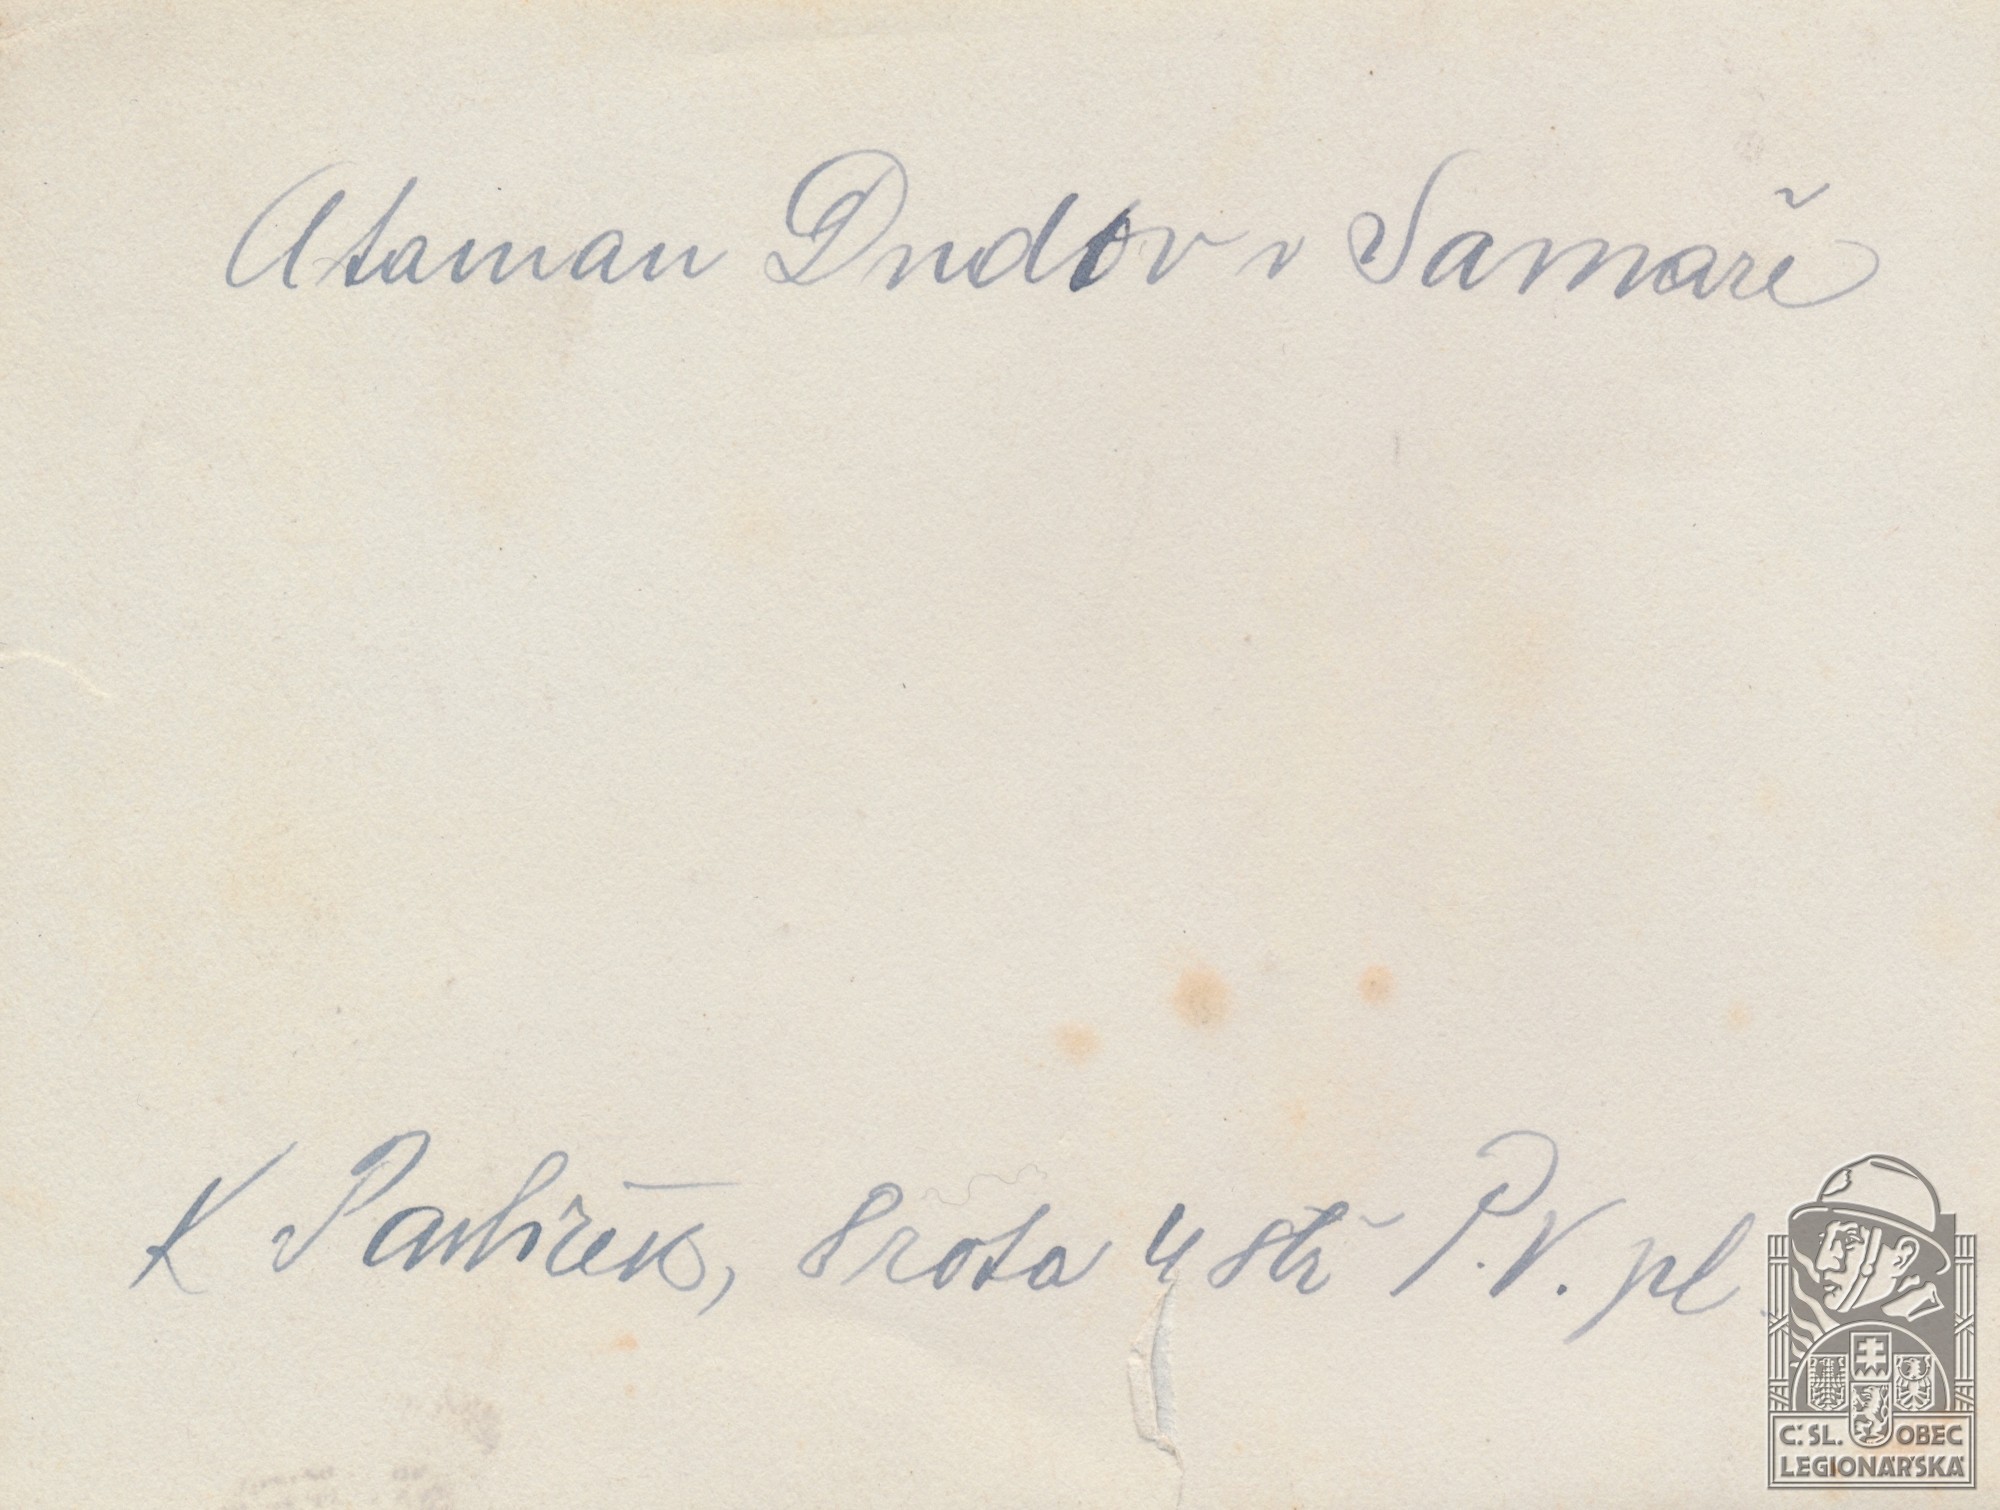 Ataman Dudov v Samaře
K Pavlíček, 8 rota 4 stř P.V. pl.
Č.SL. OBEC
LEGIONÁŘSKÁ